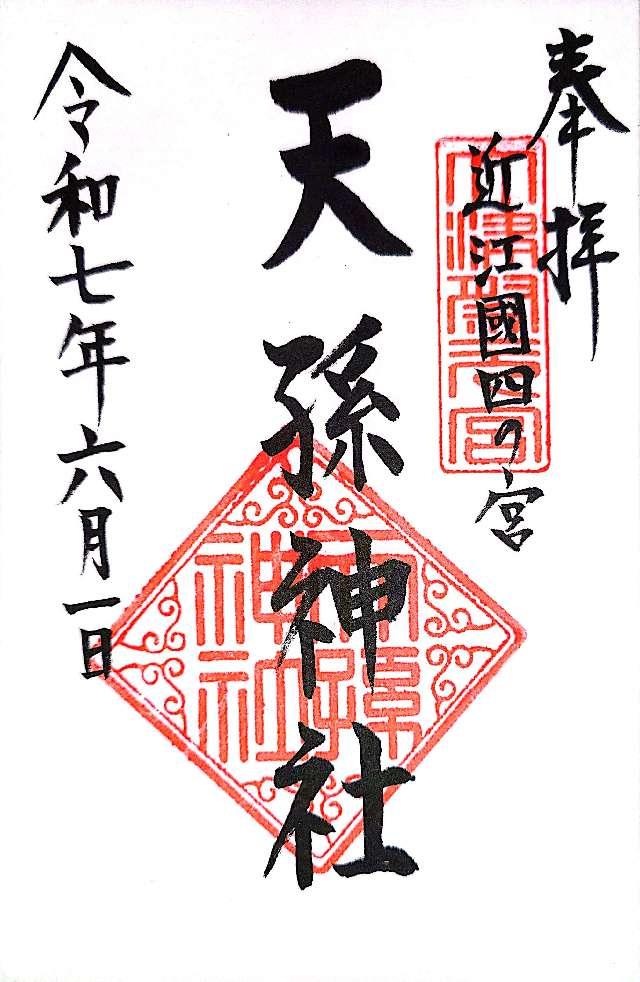 奉拝
近江國四の宮
天孫神社
令和七年六月一日
天孫神社